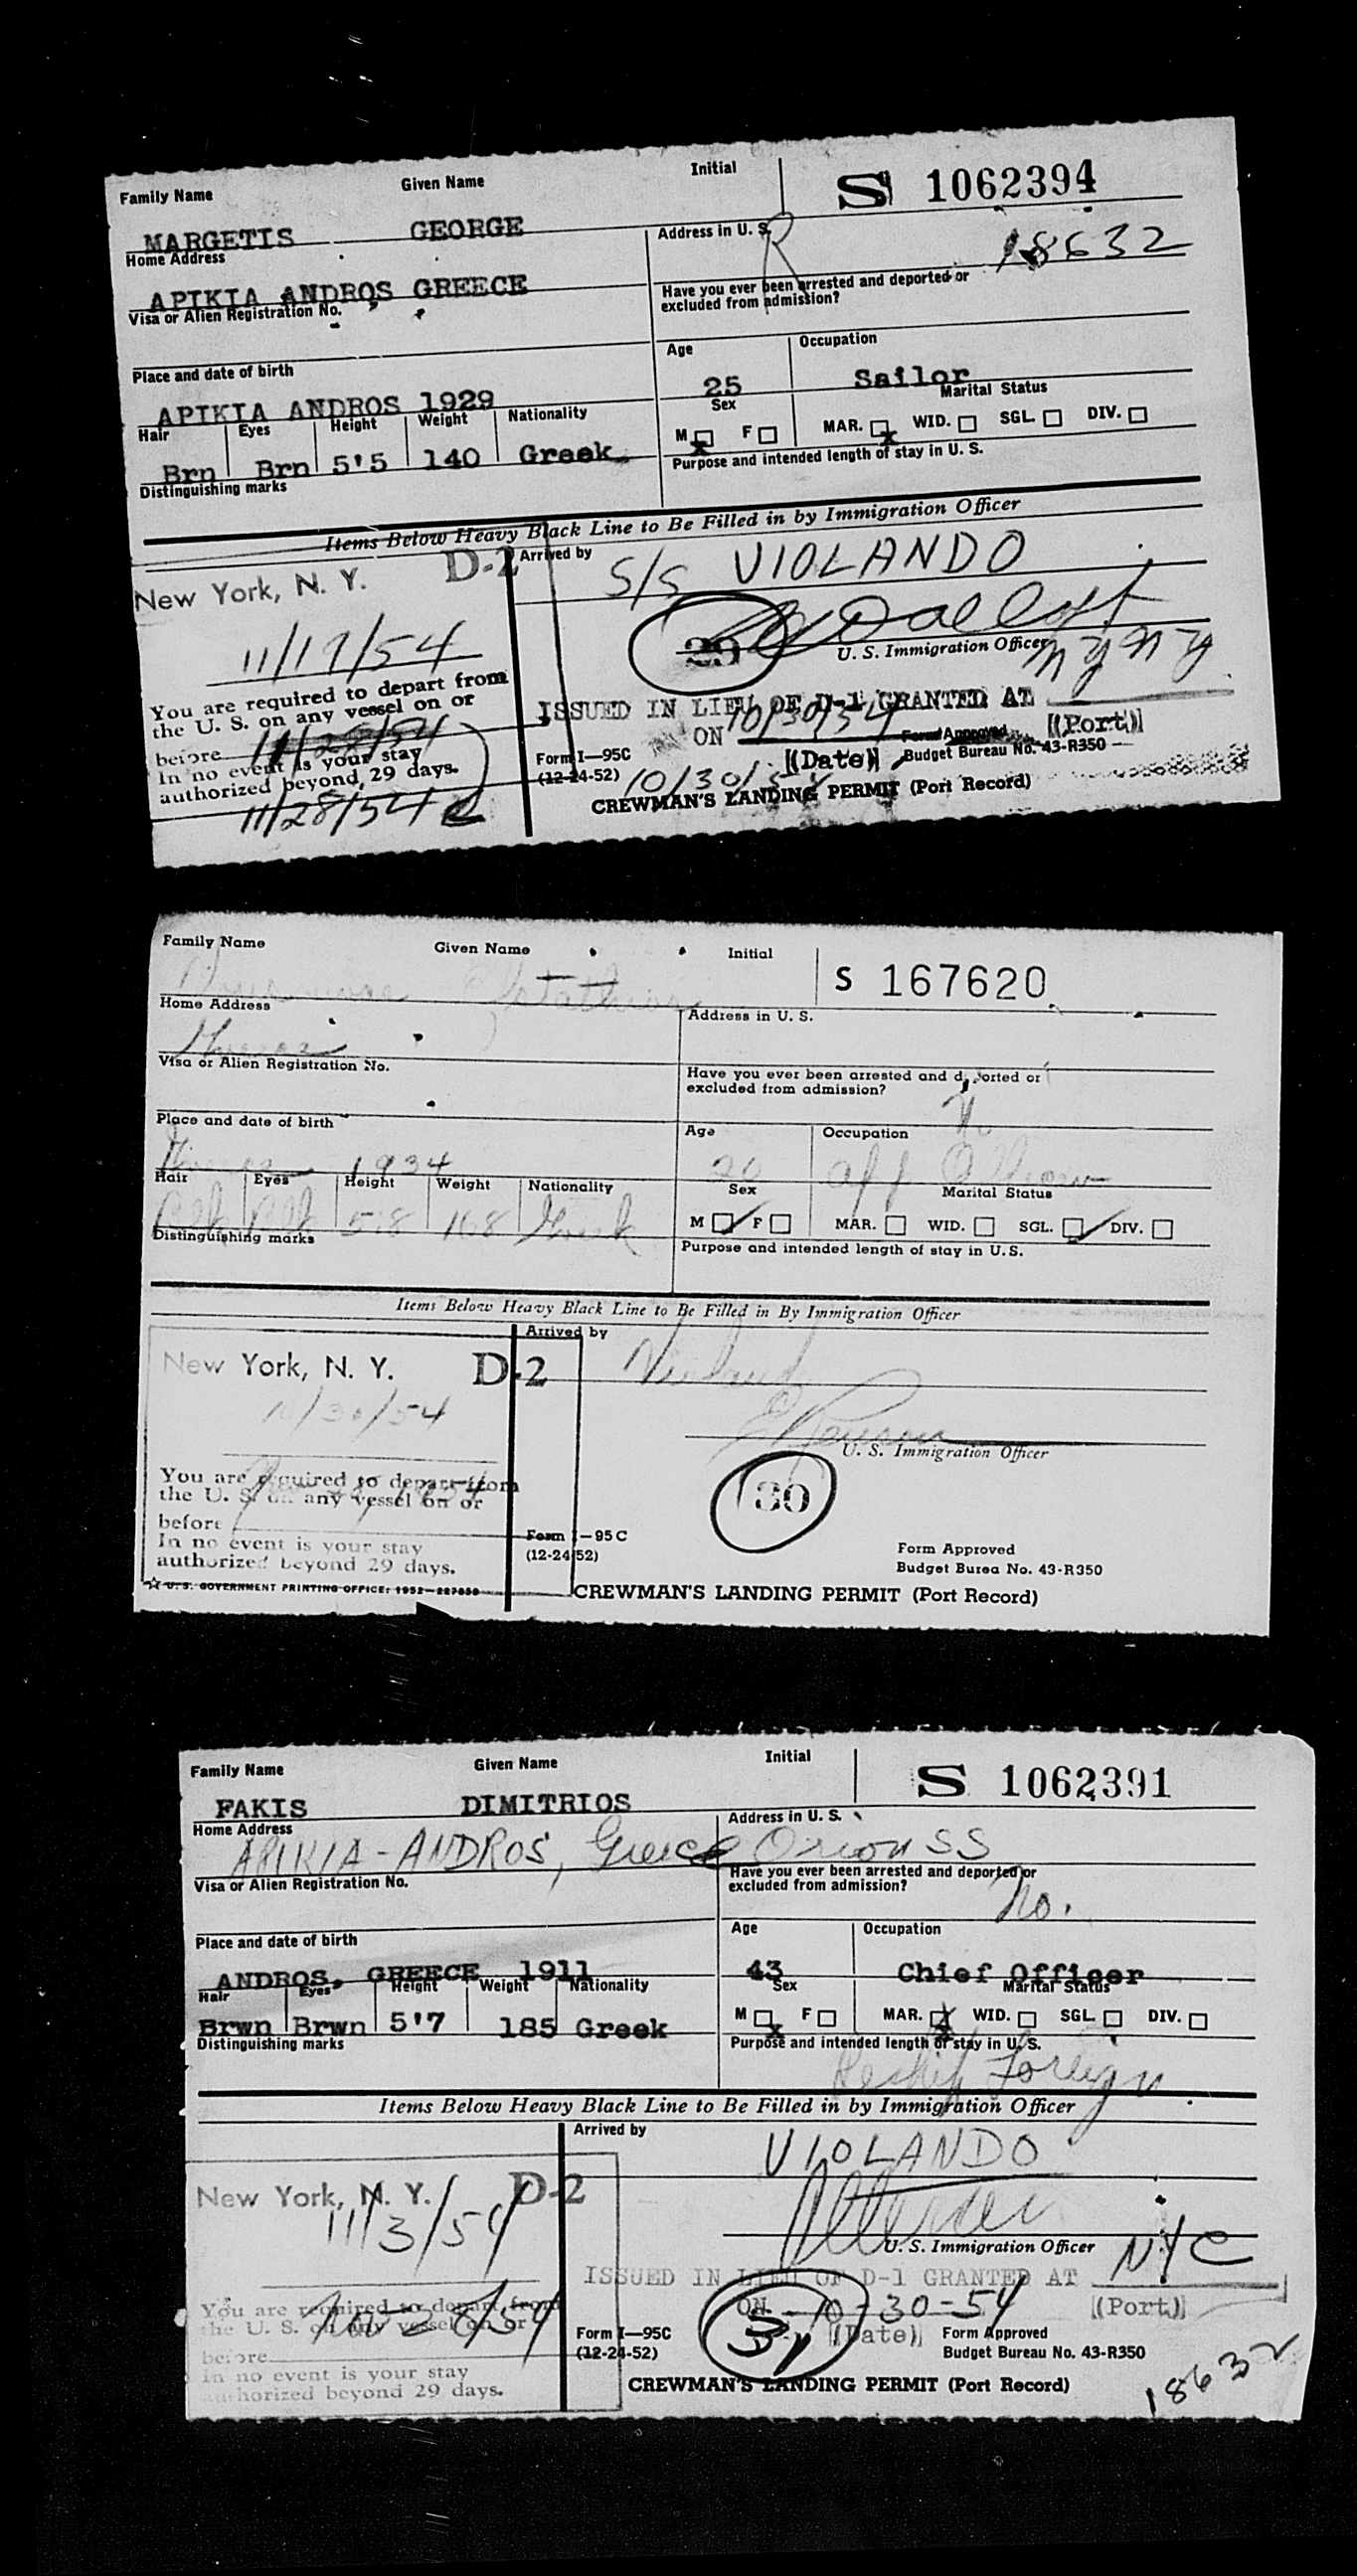 Family Name Given Name Initial
S 1062394
MARGETIS GEORGE
Home Address
Address in U. S.
R
18632
APIKIA ANDROS GREECE
Visa or Alien Registration No.
Have you ever been arrested and deported or
excluded from admission?
Place and date of birth
Age Occupation
APIKIA ANDROS 1929
25 Sailor
Hair Eyes Height Weight Nationality
Sex Marital Status
M F MAR. WID. SGL. DIV.
Brn Brn 5'5 140 Greek
Distinguishing marks
Purpose and intended length of stay in U. S.
Items Below Heavy Black Line to Be Filled in by Immigration Officer
New York, N. Y. D-2
Arrived by
S/S VIOLANDO
11/17/54
29
U. S. Immigration Officer
NYNY
You are required to depart from
the U. S. on any vessel on or
before 11/28/54
In no event is your stay
authorized beyond 29 days.
11/28/54
ISSUED IN LIEU OF D-1 GRANTED AT
ON 10/30/54 (Port)
(Date)
10/30/54
Form I—95C
(12-24-52)
Form Approved
Budget Bureau No. 43-R350
CREWMAN'S LANDING PERMIT (Port Record)
Family Name Given Name Initial
S 167620
Home Address
Address in U. S.
Visa or Alien Registration No.
Have you ever been arrested and deported or
excluded from admission?
No
Place and date of birth
Age Occupation
1934
20
Hair Eyes Height Weight Nationality
Sex Marital Status
M F MAR. WID. SGL. DIV.
Blk Blk 5'8 168 Greek
Distinguishing marks
Purpose and intended length of stay in U.S.
Items Below Heavy Black Line to Be Filled in By Immigration Officer
New York, N. Y. D-2
Arrived by
10/30/54
U. S. Immigration Officer
30
You are required to depart from
the U. S. on any vessel on or
before
In no event is your stay
authorized beyond 29 days.
Form I—95C
(12-24-52)
Form Approved
Budget Burea No. 43-R350
☆ U. S. GOVERNMENT PRINTING OFFICE: 1952
CREWMAN'S LANDING PERMIT (Port Record)
Family Name Given Name Initial
S 1062391
FAKIS DIMITRIOS
Home Address
Address in U. S.
APIKIA-ANDROS, Greece Orion SS
Visa or Alien Registration No.
Have you ever been arrested and deported or
excluded from admission?
No.
Place and date of birth
Age Occupation
ANDROS, GREECE 1911
43 Chief Officer
Hair Eyes Height Weight Nationality
Sex Marital Status
M F MAR. WID. SGL. DIV.
Brwn Brwn 5'7 185 Greek
Distinguishing marks
Purpose and intended length of stay in U. S.
Reship Foreign
Items Below Heavy Black Line to Be Filled in by Immigration Officer
New York, N. Y. D-2
Arrived by
VIOLANDO
11/3/54
U. S. Immigration Officer
NYC
You are required to depart from
the U. S. on any vessel on or
before
Nov 28/54
In no event is your stay
authorized beyond 29 days.
ISSUED IN LIEU OF D-1 GRANTED AT
ON 10-30-54 (Port)
(Date)
Form I—95C
(12-24-52)
Form Approved
Budget Bureau No. 43-R350
CREWMAN'S LANDING PERMIT (Port Record)
18632